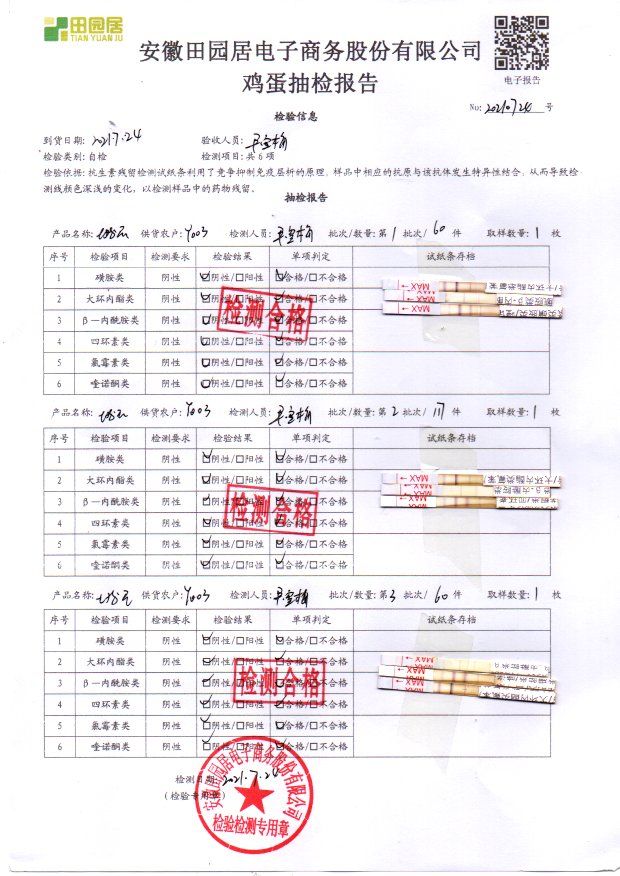 田园居
TIAN YUAN JU
安徽田园居电子商务股份有限公司
鸡蛋抽检报告
电子报告
No: 2021.07.24 号
检验信息
到货日期: 2021.7.24 验收人员:
检验类别: 自检 检测项目: 共6项
检验依据: 抗生素残留检测试纸条利用了竞争抑制免疫层析的原理, 样品中相应的抗原与该抗体发生特异性结合, 从而导致检
测线颜色深浅的变化, 以检测样品中的药物残留。
抽检报告
产品名称: 供货农户: Y003 检测人员: 批次/数量: 第 1 批次/ 60 件 取样数量: 1 枚
序号 检验项目 检测要求 检验结果 单项判定 试纸条存档
1 磺胺类 阴性 阴性/阳性 合格/不合格
2 大环内酯类 阴性 阴性/阳性 合格/不合格
3 β—内酰胺类 阴性 阴性/阳性 合格/不合格
4 四环素类 阴性 阴性/阳性 合格/不合格
5 氯霉素类 阴性 阴性/阳性 合格/不合格
6 喹诺酮类 阴性 阴性/阳性 合格/不合格
检测合格
MAX
MAX
MAX
产品名称: 供货农户: Y003 检测人员: 批次/数量: 第 2 批次/ 件 取样数量: 1 枚
序号 检验项目 检测要求 检验结果 单项判定 试纸条存档
1 磺胺类 阴性 阴性/阳性 合格/不合格
2 大环内酯类 阴性 阴性/阳性 合格/不合格
3 β—内酰胺类 阴性 阴性/阳性 合格/不合格
4 四环素类 阴性 阴性/阳性 合格/不合格
5 氯霉素类 阴性 阴性/阳性 合格/不合格
6 喹诺酮类 阴性 阴性/阳性 合格/不合格
检测合格
MAX
MAX
MAX
产品名称: 供货农户: Y003 检测人员: 批次/数量: 第 3 批次/ 60 件 取样数量: 1 枚
序号 检验项目 检测要求 检验结果 单项判定 试纸条存档
1 磺胺类 阴性 阴性/阳性 合格/不合格
2 大环内酯类 阴性 阴性/阳性 合格/不合格
3 β—内酰胺类 阴性 阴性/阳性 合格/不合格
4 四环素类 阴性 阴性/阳性 合格/不合格
5 氯霉素类 阴性 阴性/阳性 合格/不合格
6 喹诺酮类 阴性 阴性/阳性 合格/不合格
检测合格
MAX
MAX
检测日期: 2021.7.24
(检验专用章)
安徽田园居电子商务股份有限公司
检验检测专用章